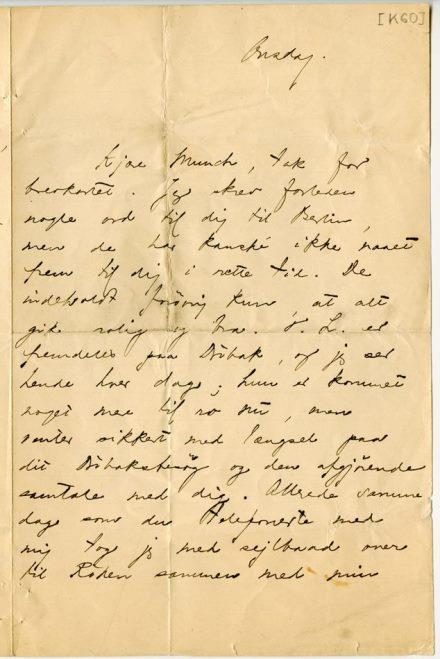 [K60]
Onsdag.
Kjære Munch, tak for
brevkortet. Jeg skrev forleden
nogle ord til dig til Berlin,
men de har kanské ikke naaet
frem til dig i rette tid. De
indeholdt forøvrig kun, at alt
gik rolig og bra. T. L. er
fremdeles paa Drøbak, og jeg ser
hende hver dag; hun er kommet
noget mer til ro nu, men
venter sikkert med længsel paa
dit Drøbaksbesøg og den afgjørende
samtale med dig. Allerede samme
dag som du telefonerte med
mig tog jeg med sejlbaad over
til Røken sammen med min